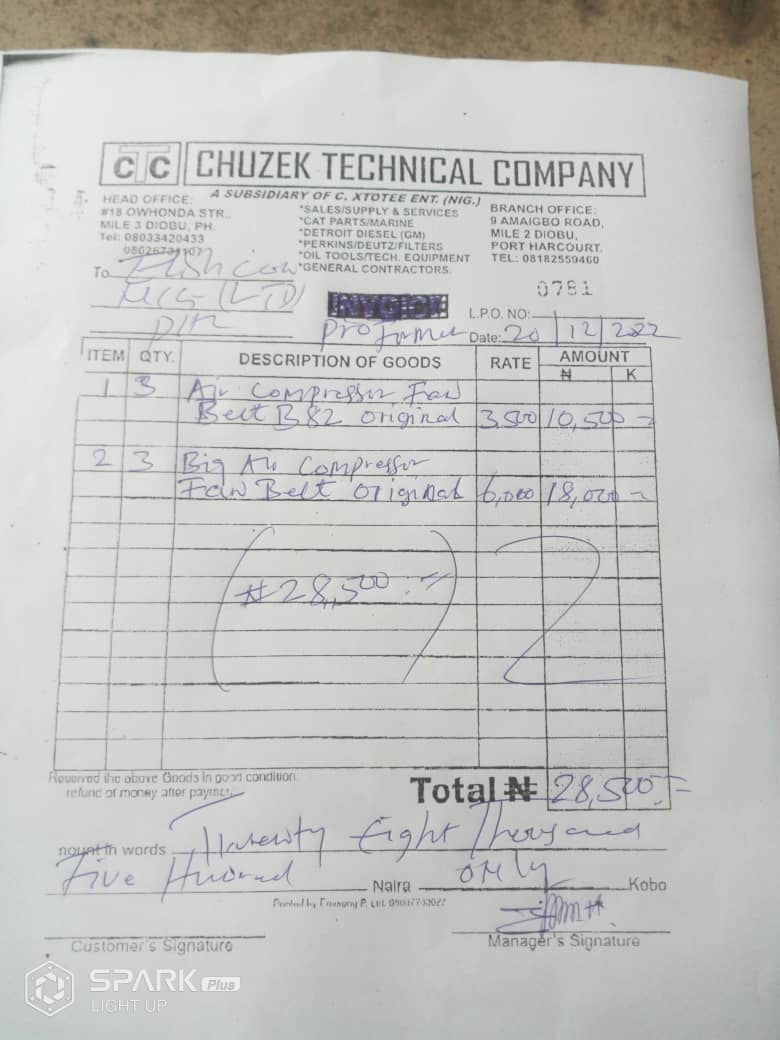 CTC CHUZEK TECHNICAL COMPANY
A SUBSIDIARY OF C. XTOTEE ENT. (NIG.)
HEAD OFFICE:
#18 OWHONDA STR.,
MILE 3 DIOBU, PH.
Tel: 08033420433
*SALES/SUPPLY & SERVICES
*CAT PARTS/MARINE
*DETROIT DIESEL (GM)
*PERKINS/DEUTZ/FILTERS
*OIL TOOLS/TECH. EQUIPMENT
*GENERAL CONTRACTORS.
BRANCH OFFICE:
9 AMAIGBO ROAD,
MILE 2 DIOBU,
PORT HARCOURT.
TEL: 08182559460
0781
To
(LTD)
INVOICE
L.P.O. NO:
Date: 20/12/2022
ITEM QTY. DESCRIPTION OF GOODS RATE AMOUNT
₦ K
1 3 Air Compressor Fan
Belt B82 original 3,500 10,500=
2 3 Big Air Compressor
Fan Belt original 6,000 18,000=
₦28,500:=
Received the above Goods in good condition.
refund of money after payment
Total ₦ 28,500:=
mount in words Twenty Eight Thousand
Five Hundred Naira only Kobo
Customer's Signature
Manager's Signature
SPARK Plus
LIGHT UP